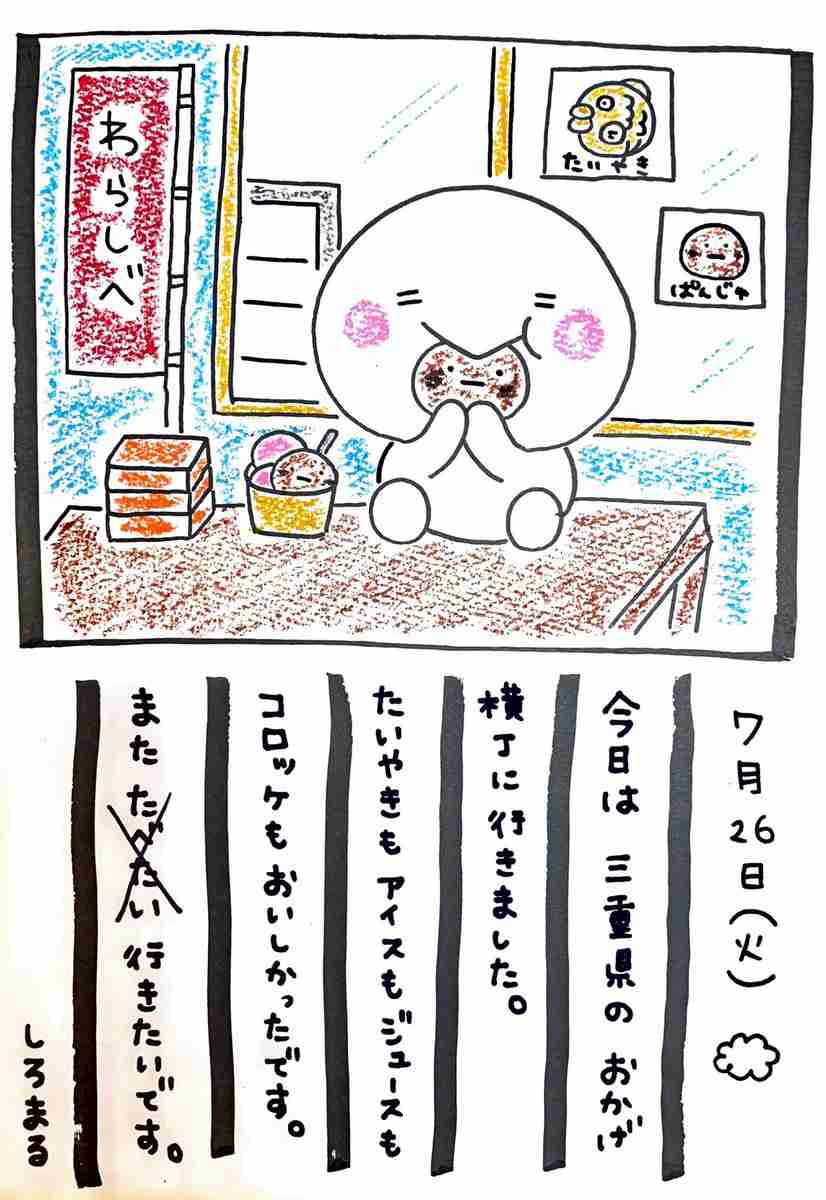 わらしべ
たいやき
ぱんじゅ
7月26日(火)
今日は 三重県の おかげ
横丁に 行きました。
たいやきも アイスも ジュースも
コロッケも おいしかったです。
また たべたい 行きたいです。
しろまる